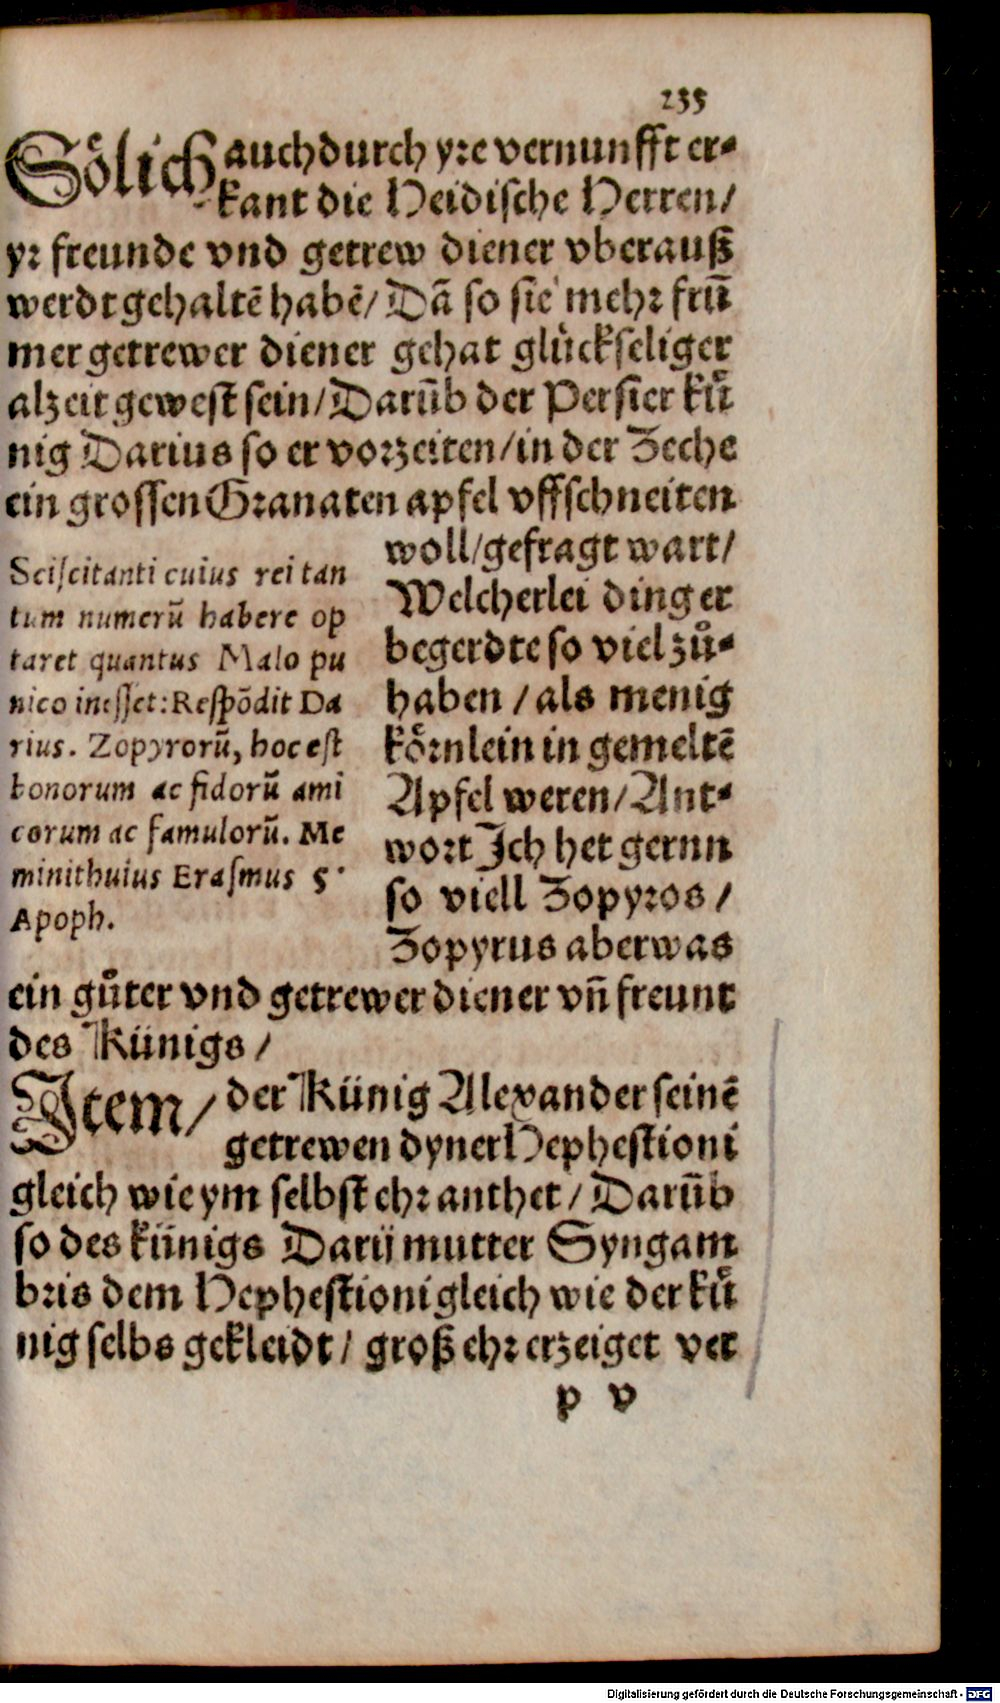 235
Sölich auch durch yre vernunfft er-
kant die Heidische Herren/
yr freunde vnd getrew diener vberauß
werdt gehaltē habē/ Dā so sie mehr frū
mer getrewer diener gehat glückseliger
alzeit gewest sein/ Darūb der Persier kü
nig Darius so er vorzeiten/ in der Zeche
ein grossen Granaten apfel vffschneiten
woll/ gefragt wart/
Welcherlei ding er
begerdte so viel zů-
haben / als menig
körnlein in gemeltē
Apfel weren/ Ant-
wort Ich het gernn
so viell Zopyros /
Zopyrus aber was
Sciscitanti cuius rei tan
tum numerū habere op
taret quantus Malo pu
nico inesset: Respōdit Da
rius. Zopyrorū, hoc est
bonorum ac fidorū ami
corum ac famulorū. Me
minit huius Erasmus 5.
Apoph.
ein gůter vnd getrewer diener vn̄ freunt
des Künigs /
Item/ der Künig Alexander seinē
getrewen dyner Hephestioni
gleich wie ym selbst ehr anthet / Darūb
so des künigs Darij mutter Syngam
bris dem Hephestioni gleich wie der kü
nig selbs gekleidt / groß ehr erzeiget ver
p v
Digitalisierung gefördert durch die Deutsche Forschungsgemeinschaft - DFG